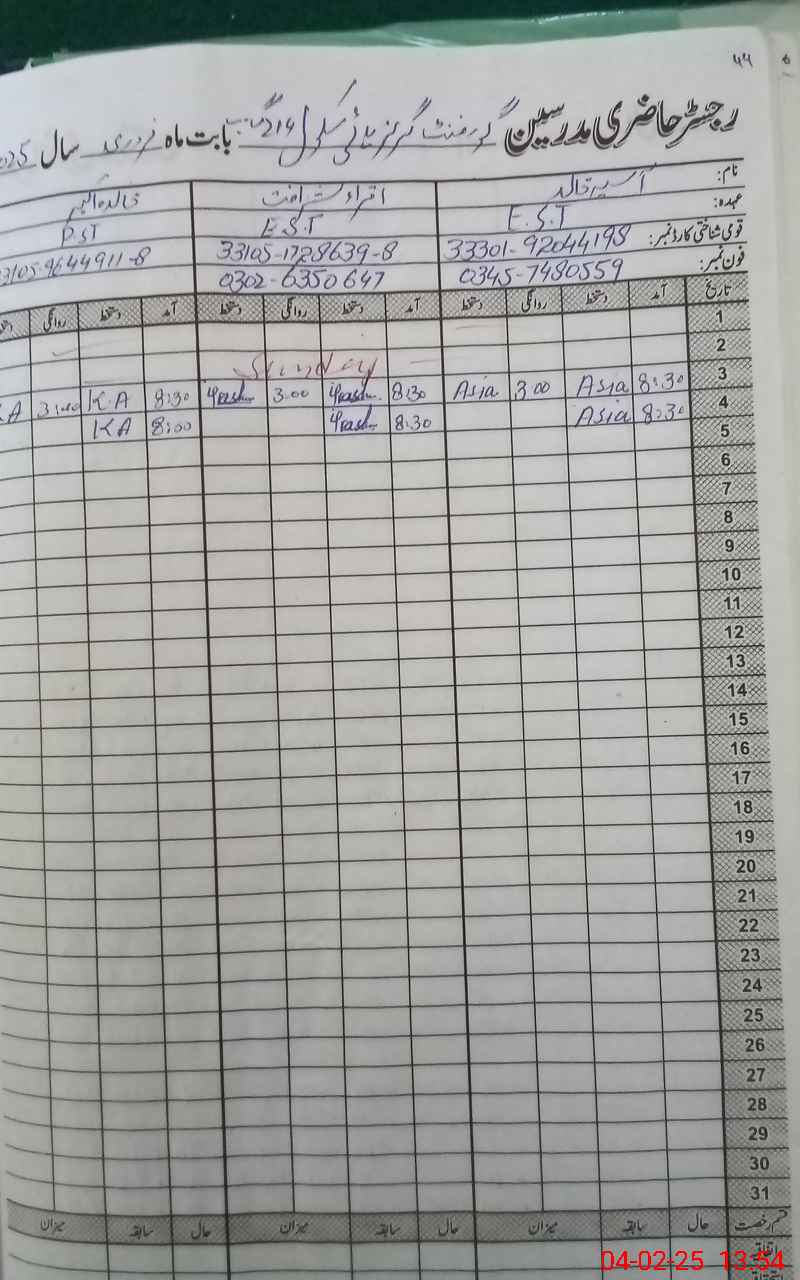 ۴۴
رجسٹر حاضری مدرسین گورنمنٹ گرلز ہائی سکول 214 گ ب بابت ماہ فروری سال 2025
نام: آسیہ خالد اقراء شرافت خالدہ
عہدہ: E.S.T E.S.T P.S.T
قومی شناختی کارڈ نمبر: 33105-1728639-8 33105-9644911-8
فون نمبر: 0345-7480559 0302-6350647
تاریخ آمد دستخط روانگی دستخط آمد دستخط روانگی دستخط آمد دستخط روانگی دستخط
1
2 Sunday
3 8:30 Asia 3:00 Asia 8:30 3:00 8:30 K.A 3:00 KA
4 8:30 Asia 8:30 8:00 KA
5
6
7
8
9
10
11
12
13
14
15
16
17
18
19
20
21
22
23
24
25
26
27
28
29
30
31
قسم رخصت حال سابقہ میزان حال سابقہ میزان حال سابقہ میزان
اتفاقیہ
04-02-25 13:54